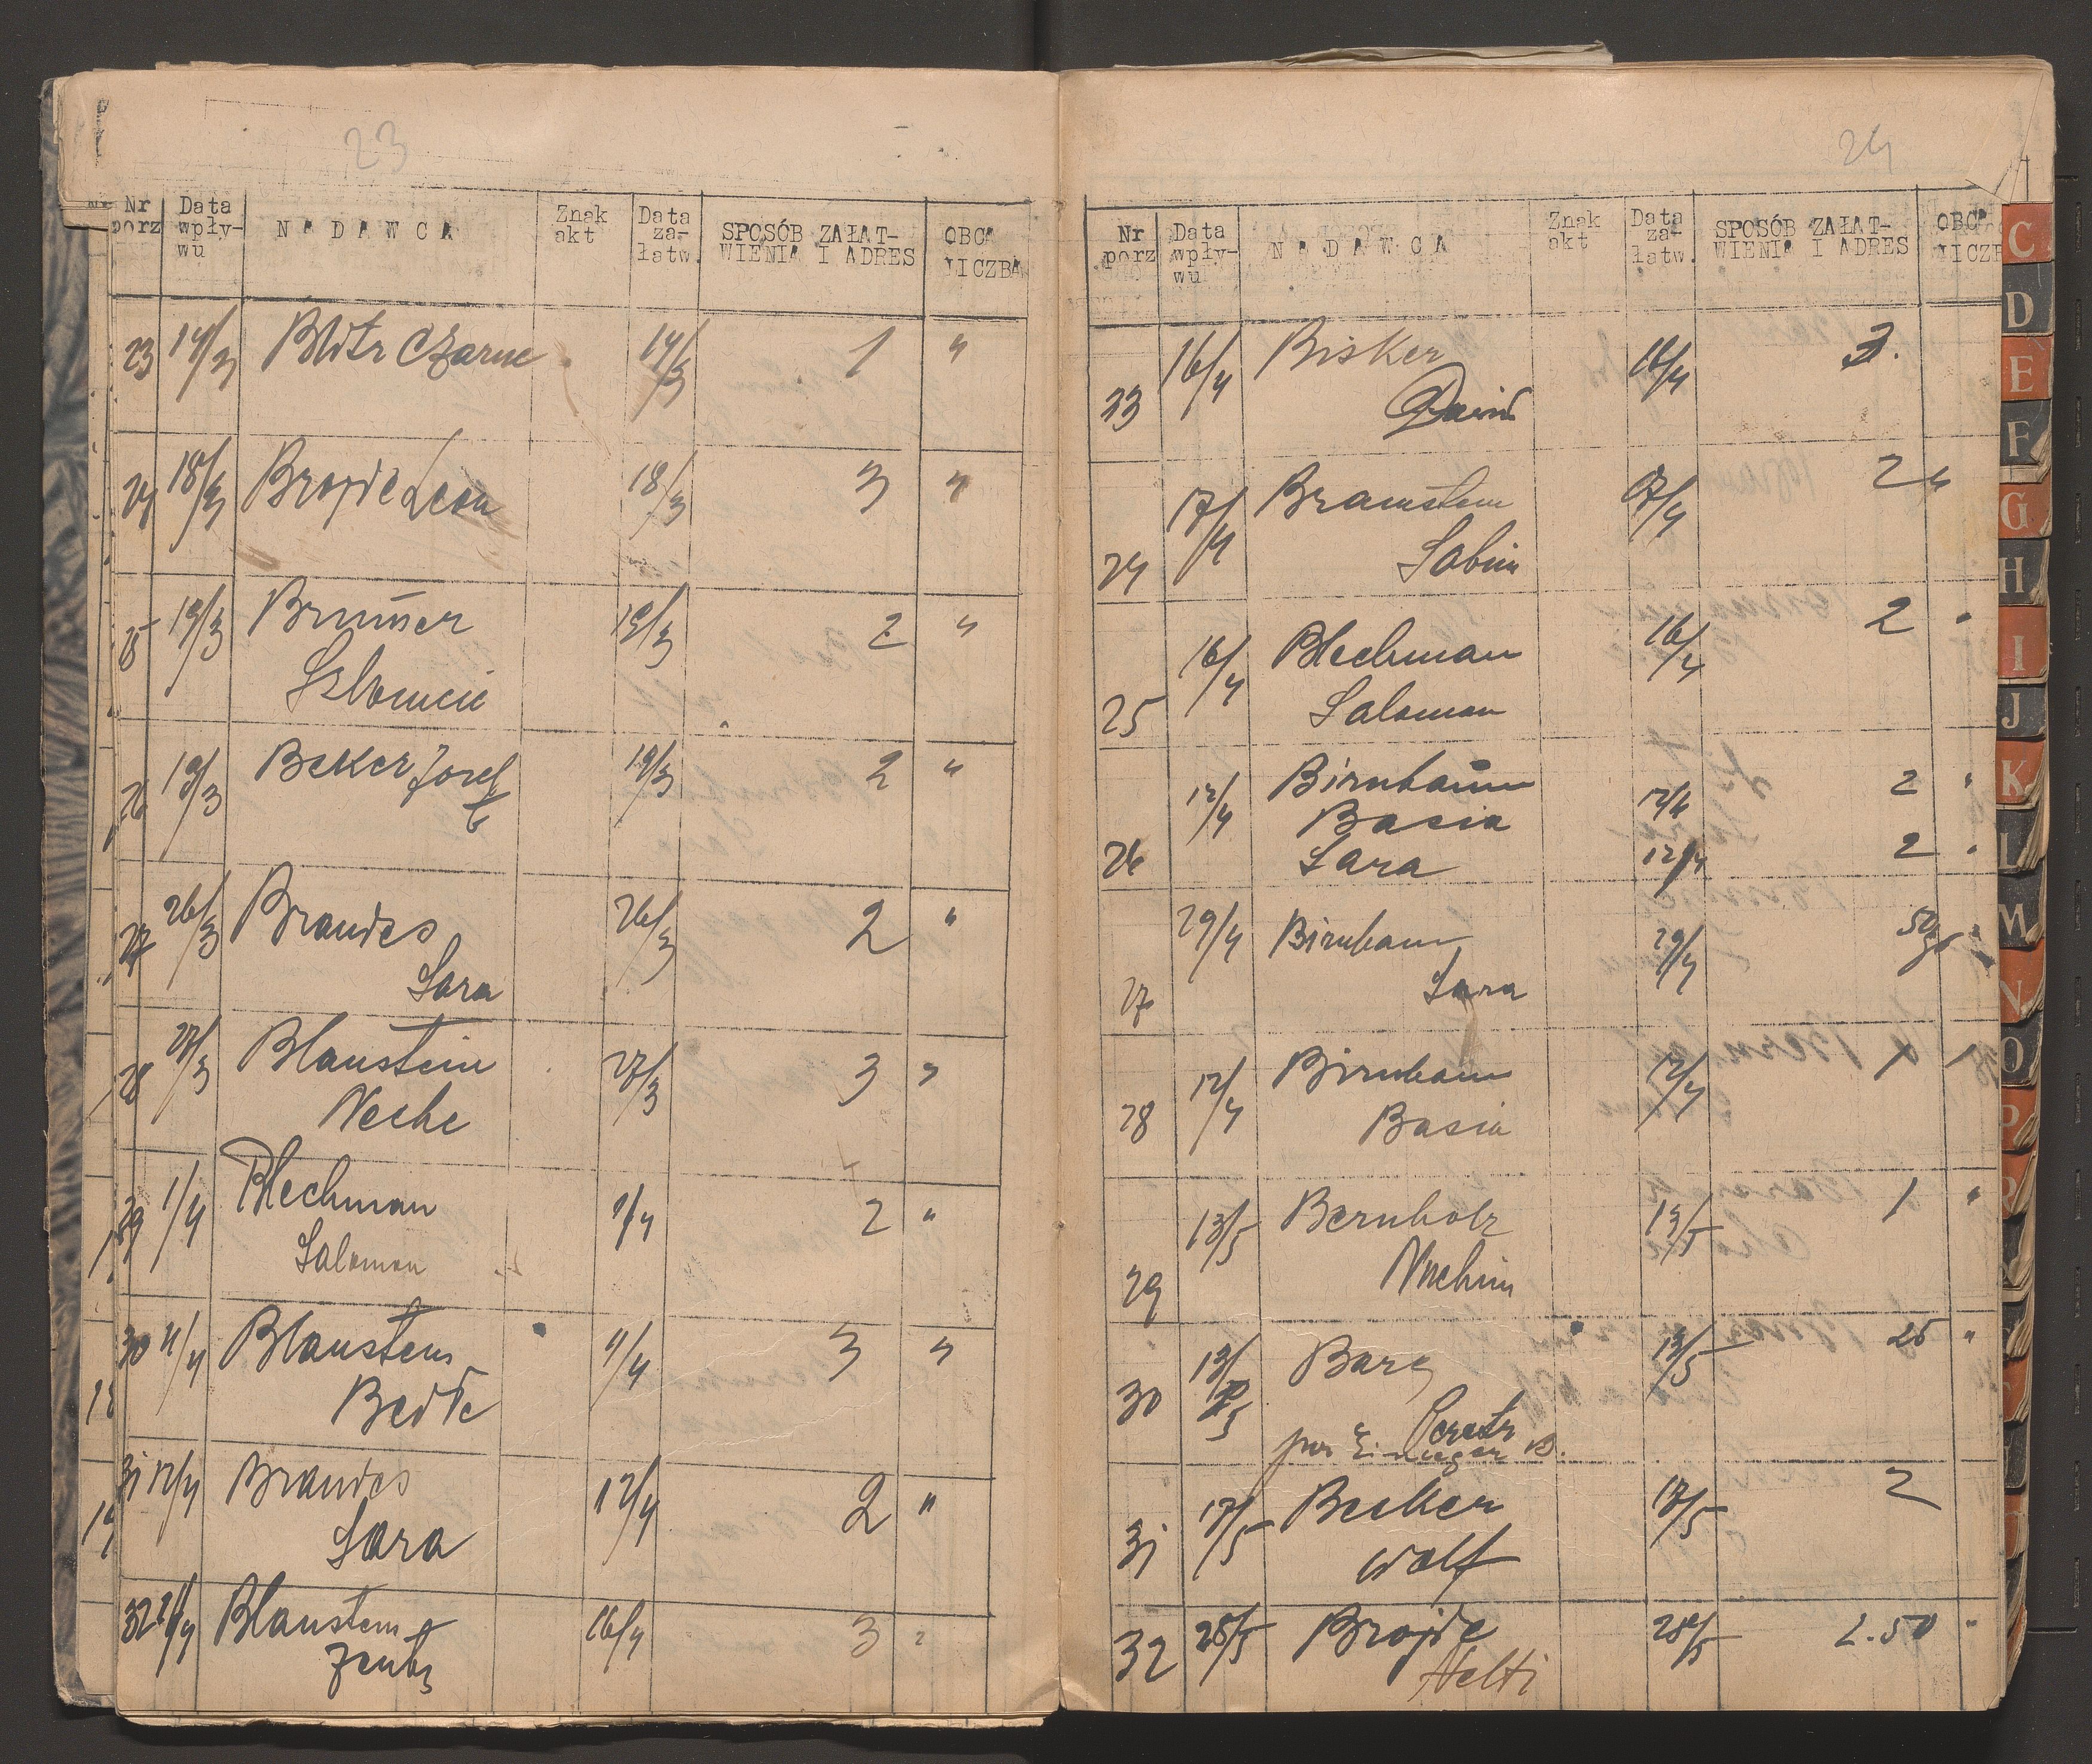 23
Nr porz
Data wpły-wu
NADAWCA
Znak akt
Data za-łatw.
SPOSÓB ZAŁAT-WIENIA I ADRES
OBCA LICZBA
23 14/3 Blitz Czarne 14/3 1 "
24 18/3 Brojde Leon 18/3 3 "
25 19/3 Brunner 19/3 2 "
26 19/3 Beker Josef 19/3 2 "
27 26/3 Brandes 26/3 2 "
Sara
28 27/3 Blaustein 27/3 3 "
Neche
29 1/4 Blechman 1/4 2 "
Salomon
30 11/4 Blaustein 11/4 3 "
31 12/4 Brandes 12/4 2 "
Sara
32 Blaustein 16/4 3
24
Nr porz
Data wpły-wu
NADAWCA
Znak akt
Data za-łatw.
SPOSÓB ZAŁAT-WIENIA I ADRES
OBCA LICZB
33 16/4 Bisker 16/4 3.
Dawid
24 17/4 17/4 2 "
25 16/4 Blechman 16/4 2 "
Salomon
12/4 Birnbaum 12/4 2 "
Basia
26 Sara 12/4 2 "
27 29/4 Birnbaum 29/4 50 gr "
Sara
28 12/4 Birnbaum 12/4 1
Basia
29 13/5 Bernholz 13/5 1 "
Nuchim
30 13/5 Barg 13/5 25 "
31 17/5 Becker 17/5 2
Wolf
32 28/5 Brojde 28/5 2.50 "
C
D
E
F
G
H
I
J
K
L
M
N
O
P
R